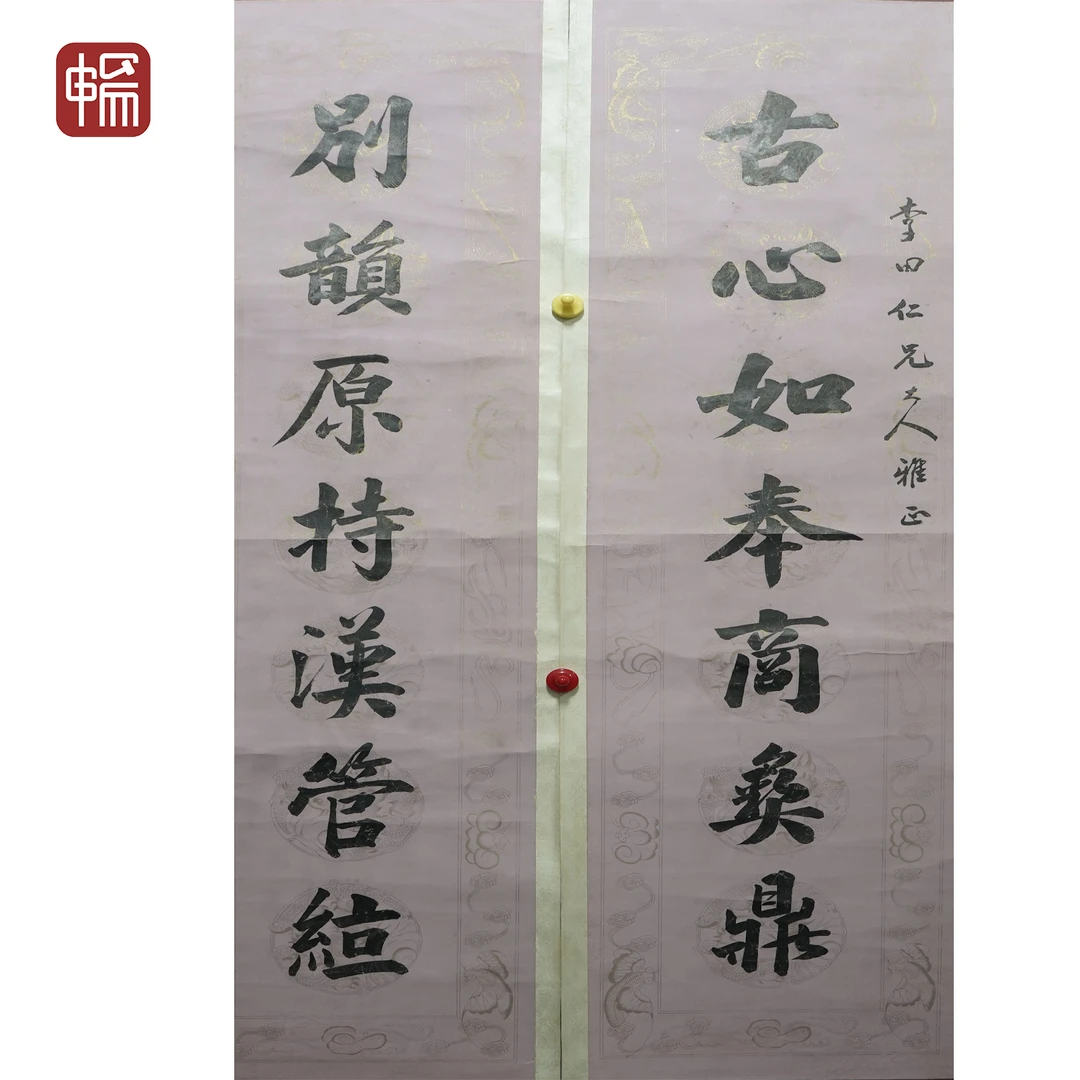 李田仁兄大人雅正
古心如奉商彝鼎
別韻原持漢管絙